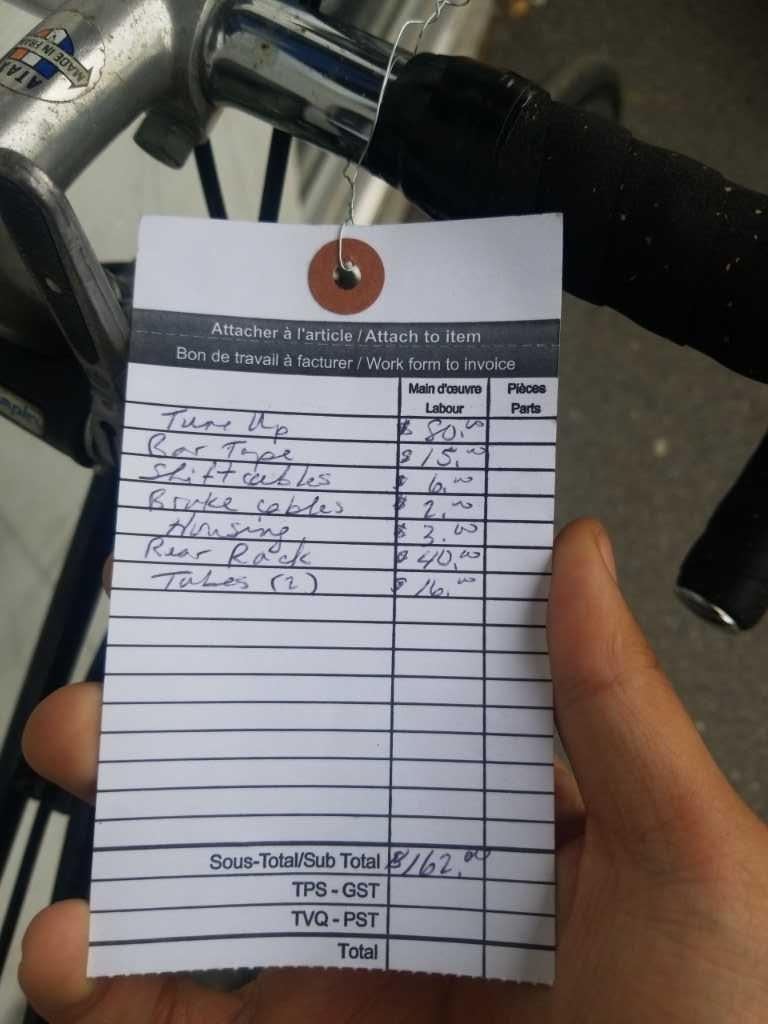 ATAX
MADE IN FRANCE
Attacher à l'article / Attach to item
Bon de travail à facturer / Work form to invoice
Main d'œuvre Pièces
Labour Parts
Tune Up $ 80.00
Bar Tape $ 15.00
Shift cables $ 6.00
Brake cables $ 2.00
Housing $ 3.00
Rear Rack $ 40.00
Tubes (2) $ 16.00
Sous-Total/Sub Total $162.00
TPS - GST
TVQ - PST
Total